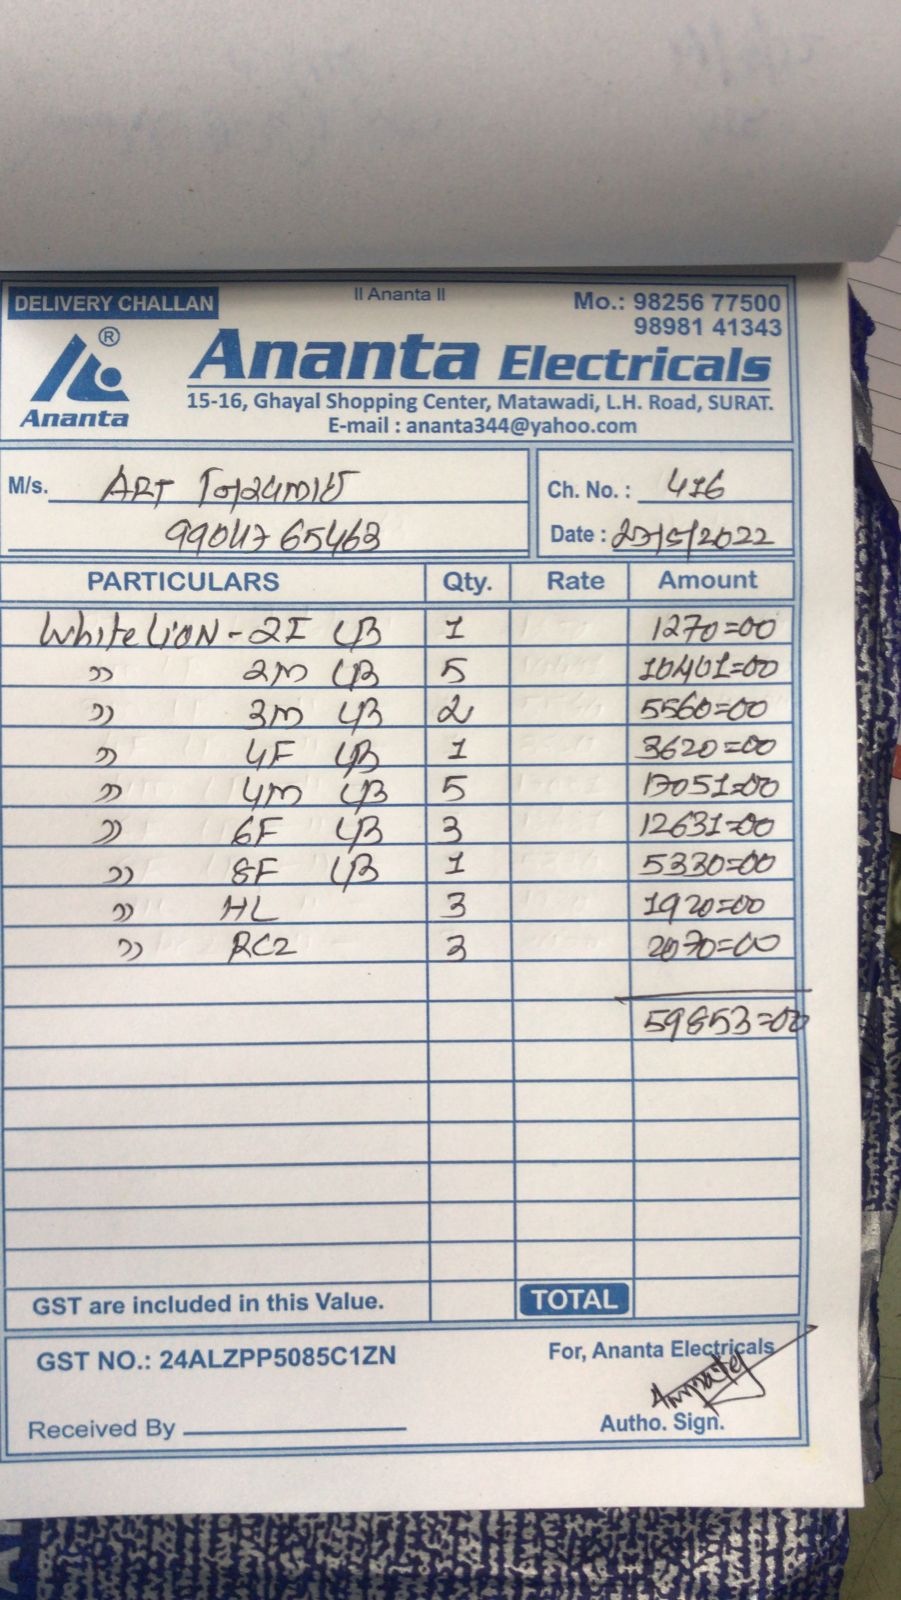 DELIVERY CHALLAN
|| Ananta ||
Mo.: 98256 77500
98981 41343
®
Ananta
Ananta Electricals
15-16, Ghayal Shopping Center, Matawadi, L.H. Road, SURAT.
E-mail : ananta344@yahoo.com
M/s. ART
Ch. No. : 416
99047 65463
Date : 27/5/2022
PARTICULARS Qty. Rate Amount
White LION - 2I LB 1 1270=00
" 2M LB 5 10401=00
" 3M LB 2 5560=00
" 4F LB 1 3620=00
" 4M LB 5 17051=00
" 6F LB 3 12631=00
" 8F LB 1 5330=00
" HL 3 1920=00
" RC2 3 2070=00
59853=00
GST are included in this Value. TOTAL
GST NO.: 24ALZPP5085C1ZN
For, Ananta Electricals
Received By
Autho. Sign.